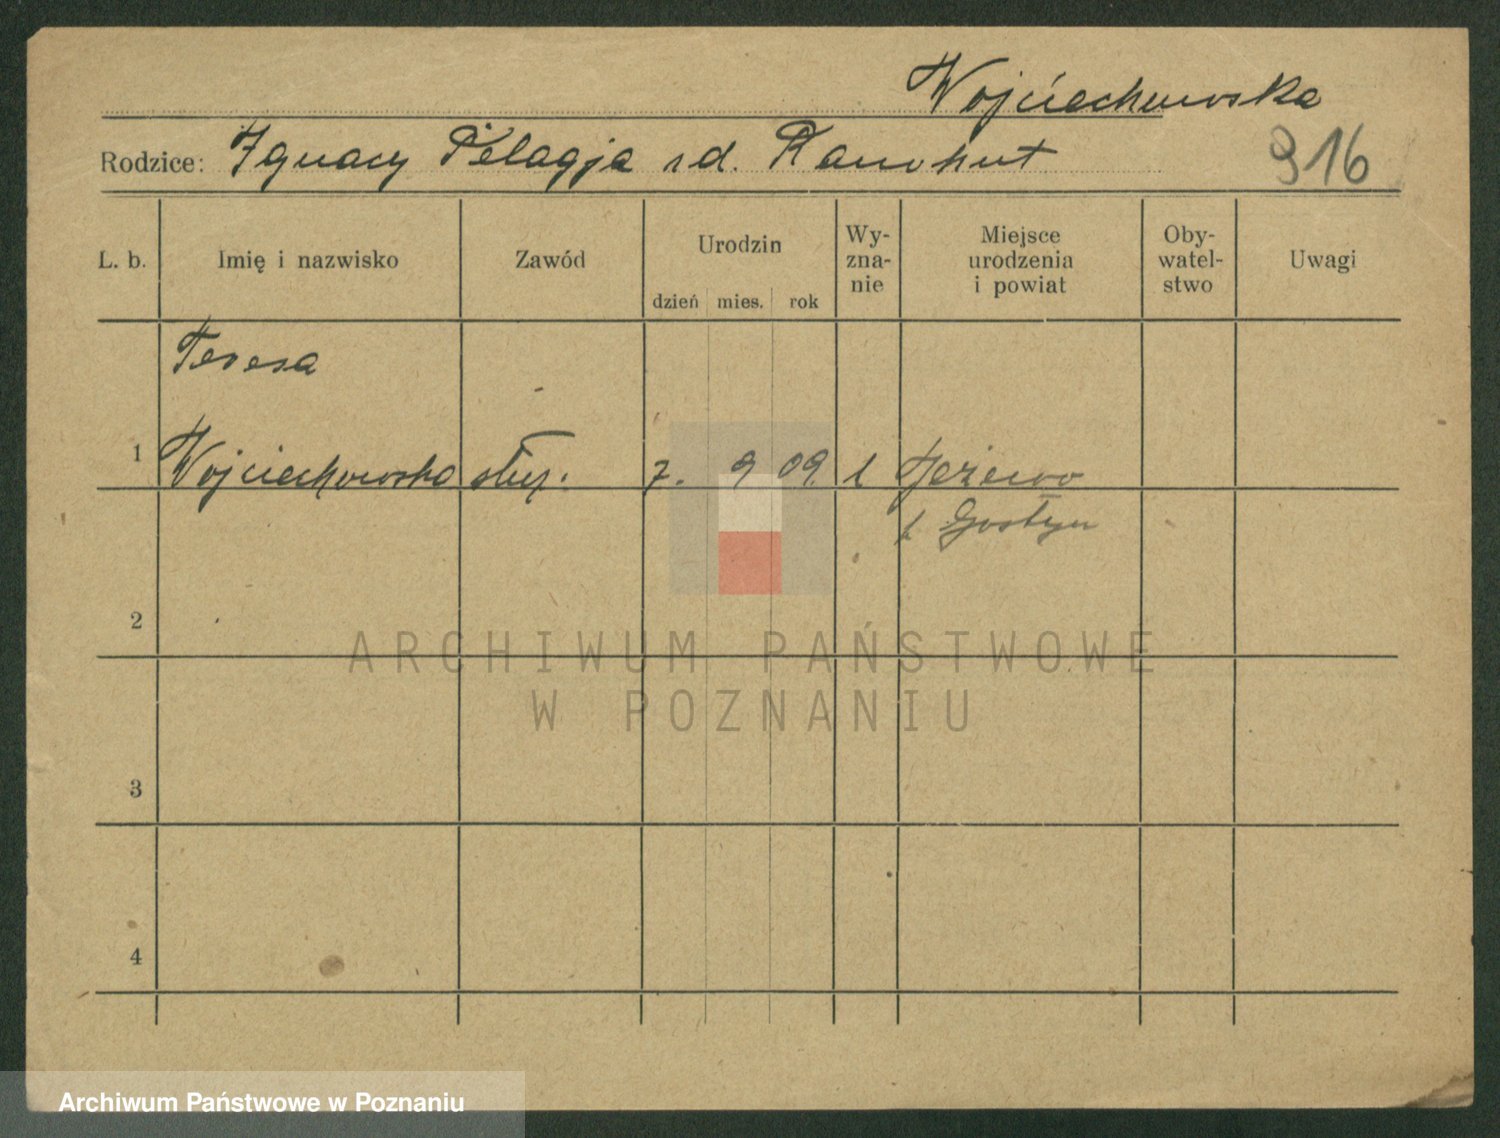 Wojciechowska
Rodzice: Ignacy Pelagja rd. Ranohut
916
L. b. Imię i nazwisko Zawód Urodzin dzień mies. rok Wy-zna-nie Miejsce urodzenia i powiat Oby-watel-stwo Uwagi
Teresa
1 Wojciechowska służ. 7. 9 09. k Jeżewo
p Gostyn
2
ARCHIWUM PAŃSTWOWE
W POZNANIU
3
4
Archiwum Państwowe w Poznaniu